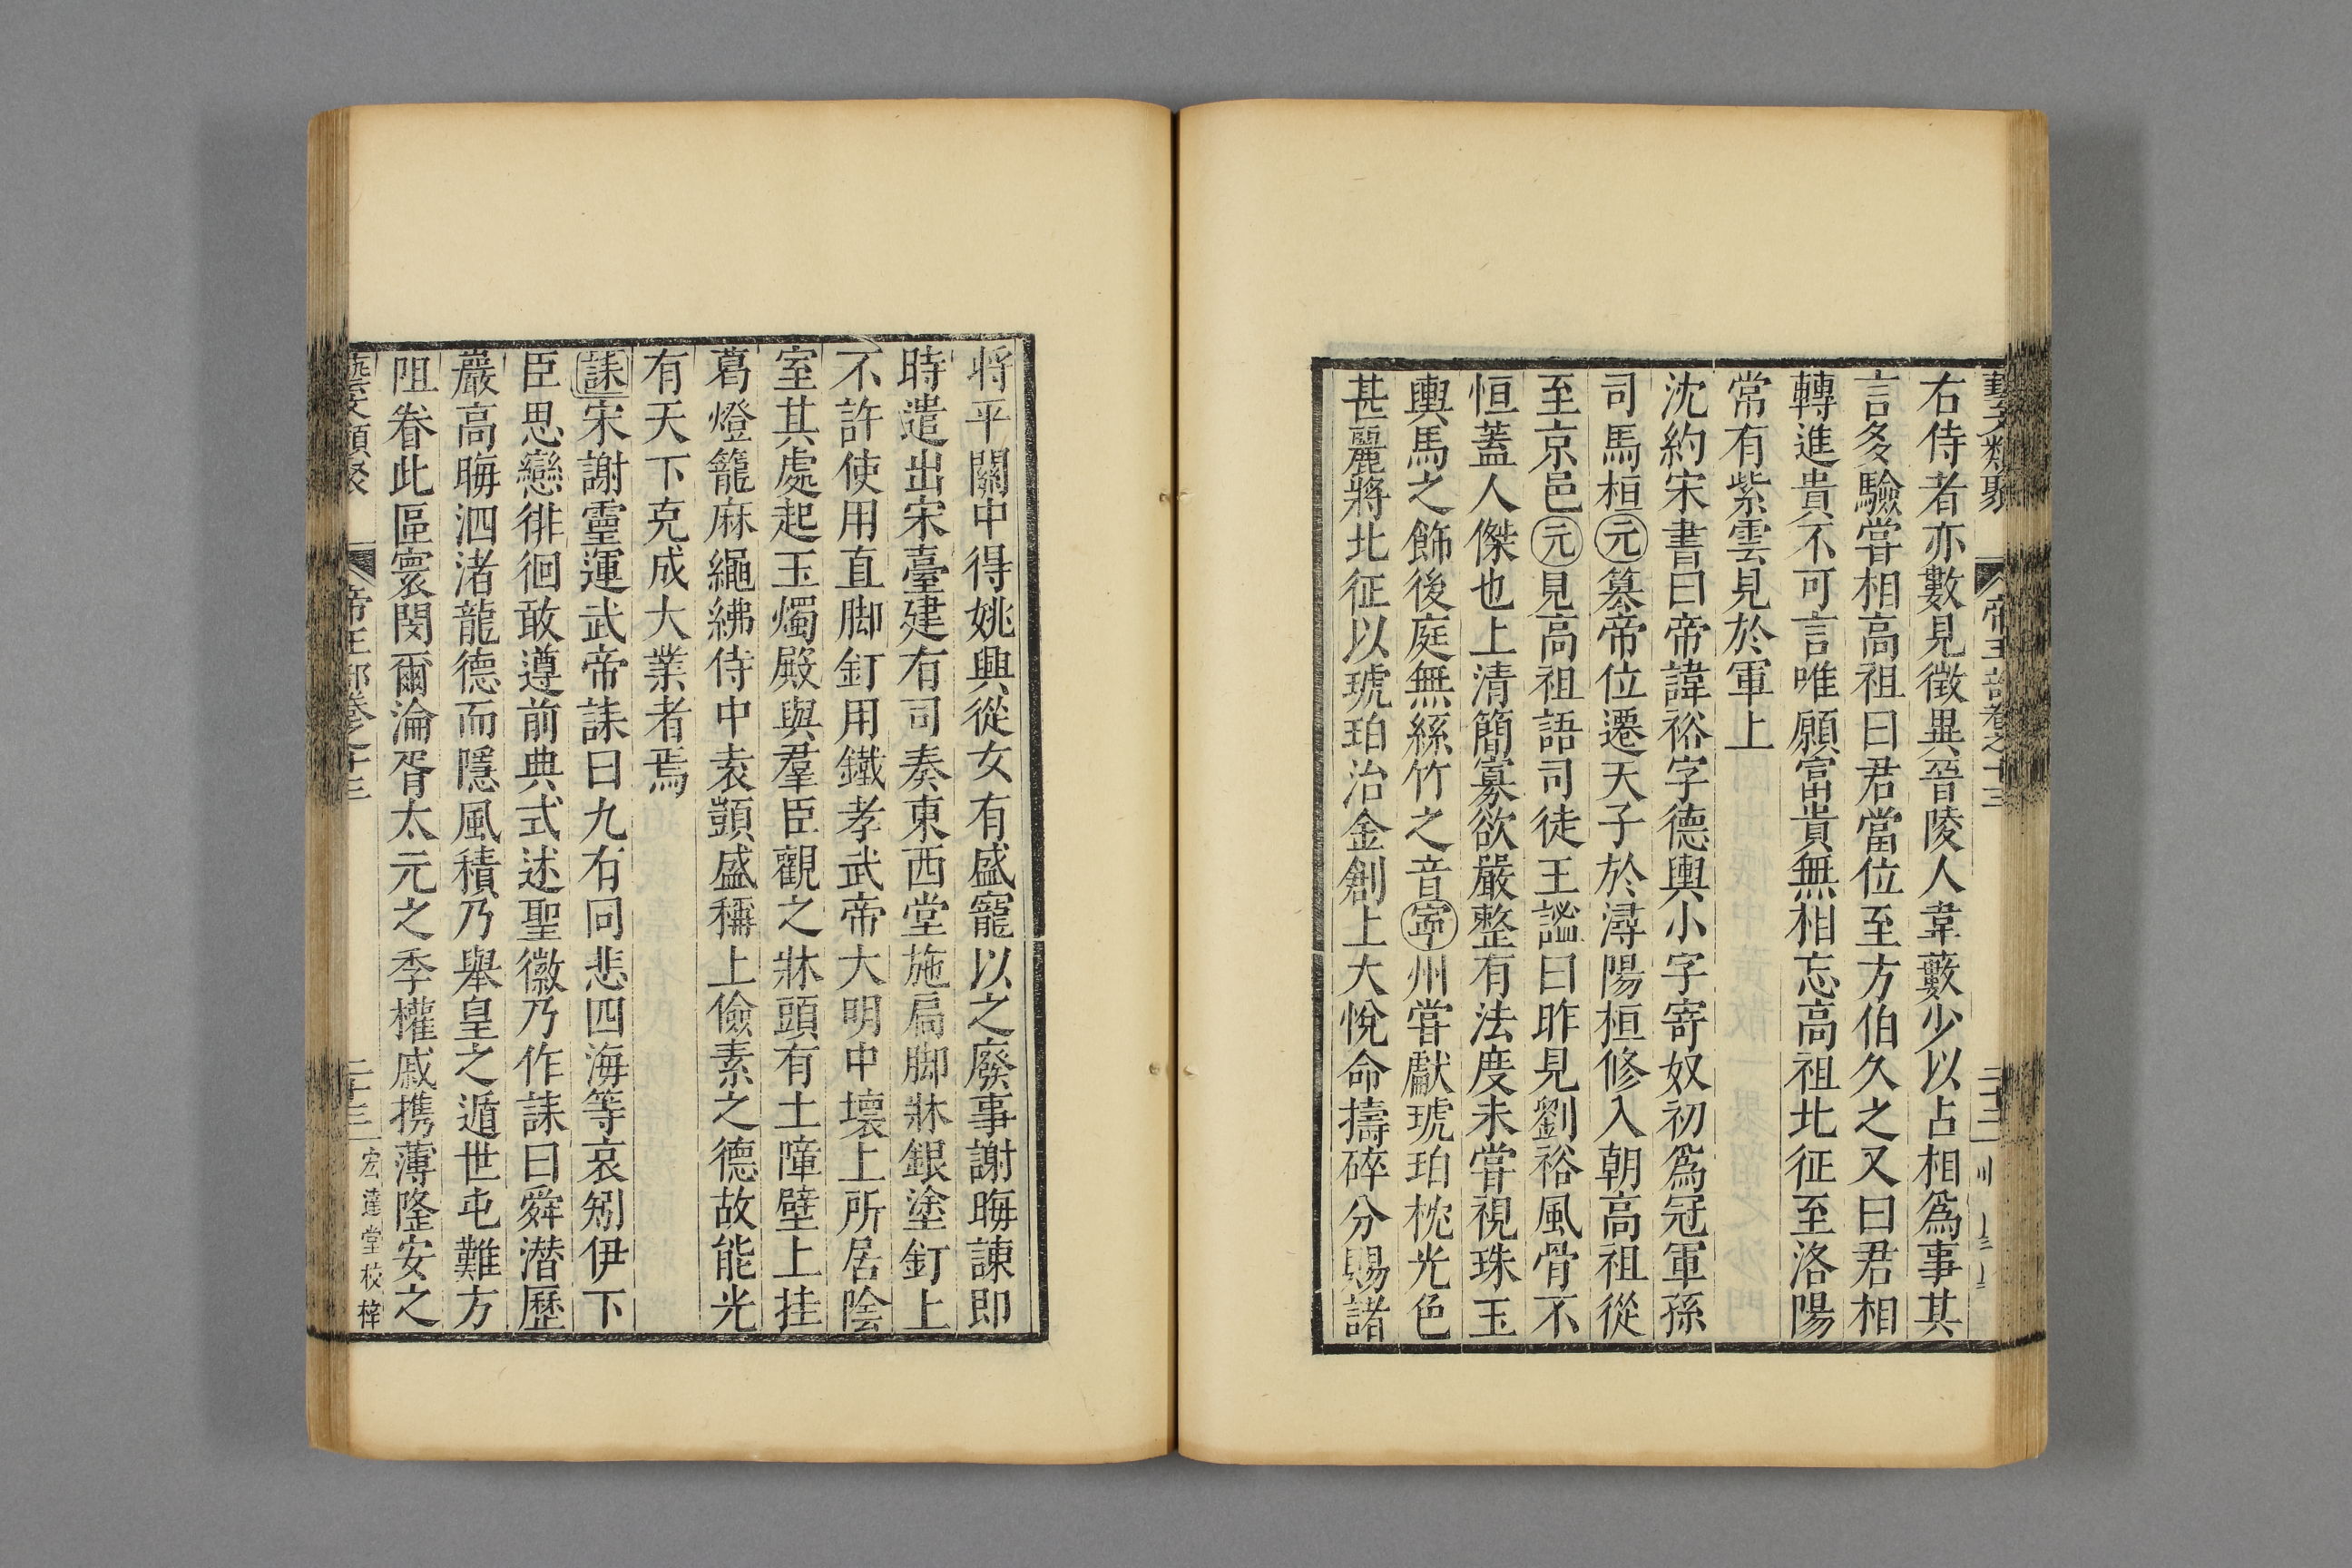 藝文類聚 帝王部卷之十三
右侍者亦數見徵異晉陵人韋藪少以占相爲事其
言多驗嘗相高祖曰君當位至方伯久之又曰君相
轉進貴不可言唯願富貴無相忘高祖北征至洛陽
常有紫雲見於軍上
沈約宋書曰帝諱裕字德輿小字寄奴初爲冠軍孫
司馬桓元篡帝位遷天子於潯陽桓修入朝高祖從
至京邑元見高祖語司徒王謐曰昨見劉裕風骨不
恒蓋人傑也上清簡寡欲嚴整有法度未嘗視珠玉
輿馬之飾後庭無絲竹之音寧州嘗獻琥珀枕光色
甚麗將北征以琥珀治金創上大悅命擣碎分賜諸
將平關中得姚興從女有盛寵以之廢事謝晦諫即
時遣出宋臺建有司奏東西堂施扃脚牀銀塗釘上
不許使用直脚釘用鐵孝武帝大明中壞上所居陰
室其處起玉燭殿與羣臣觀之牀頭有土障壁上挂
葛燈籠麻繩紼侍中袁顗盛稱上儉素之德故能光
有天下克成大業者焉
誄宋謝靈運武帝誄曰九有同悲四海等哀矧伊下
臣思戀徘徊敢遵前典式述聖徽乃作誄曰舜潛歷
嚴高晦泗渚龍德而隱風積乃舉皇之遁世屯難方
阻眷此區寰閔爾淪胥太元之季權戚攜薄隆安之
藝文類聚 帝王部卷之十三 二十三 宏達堂校梓